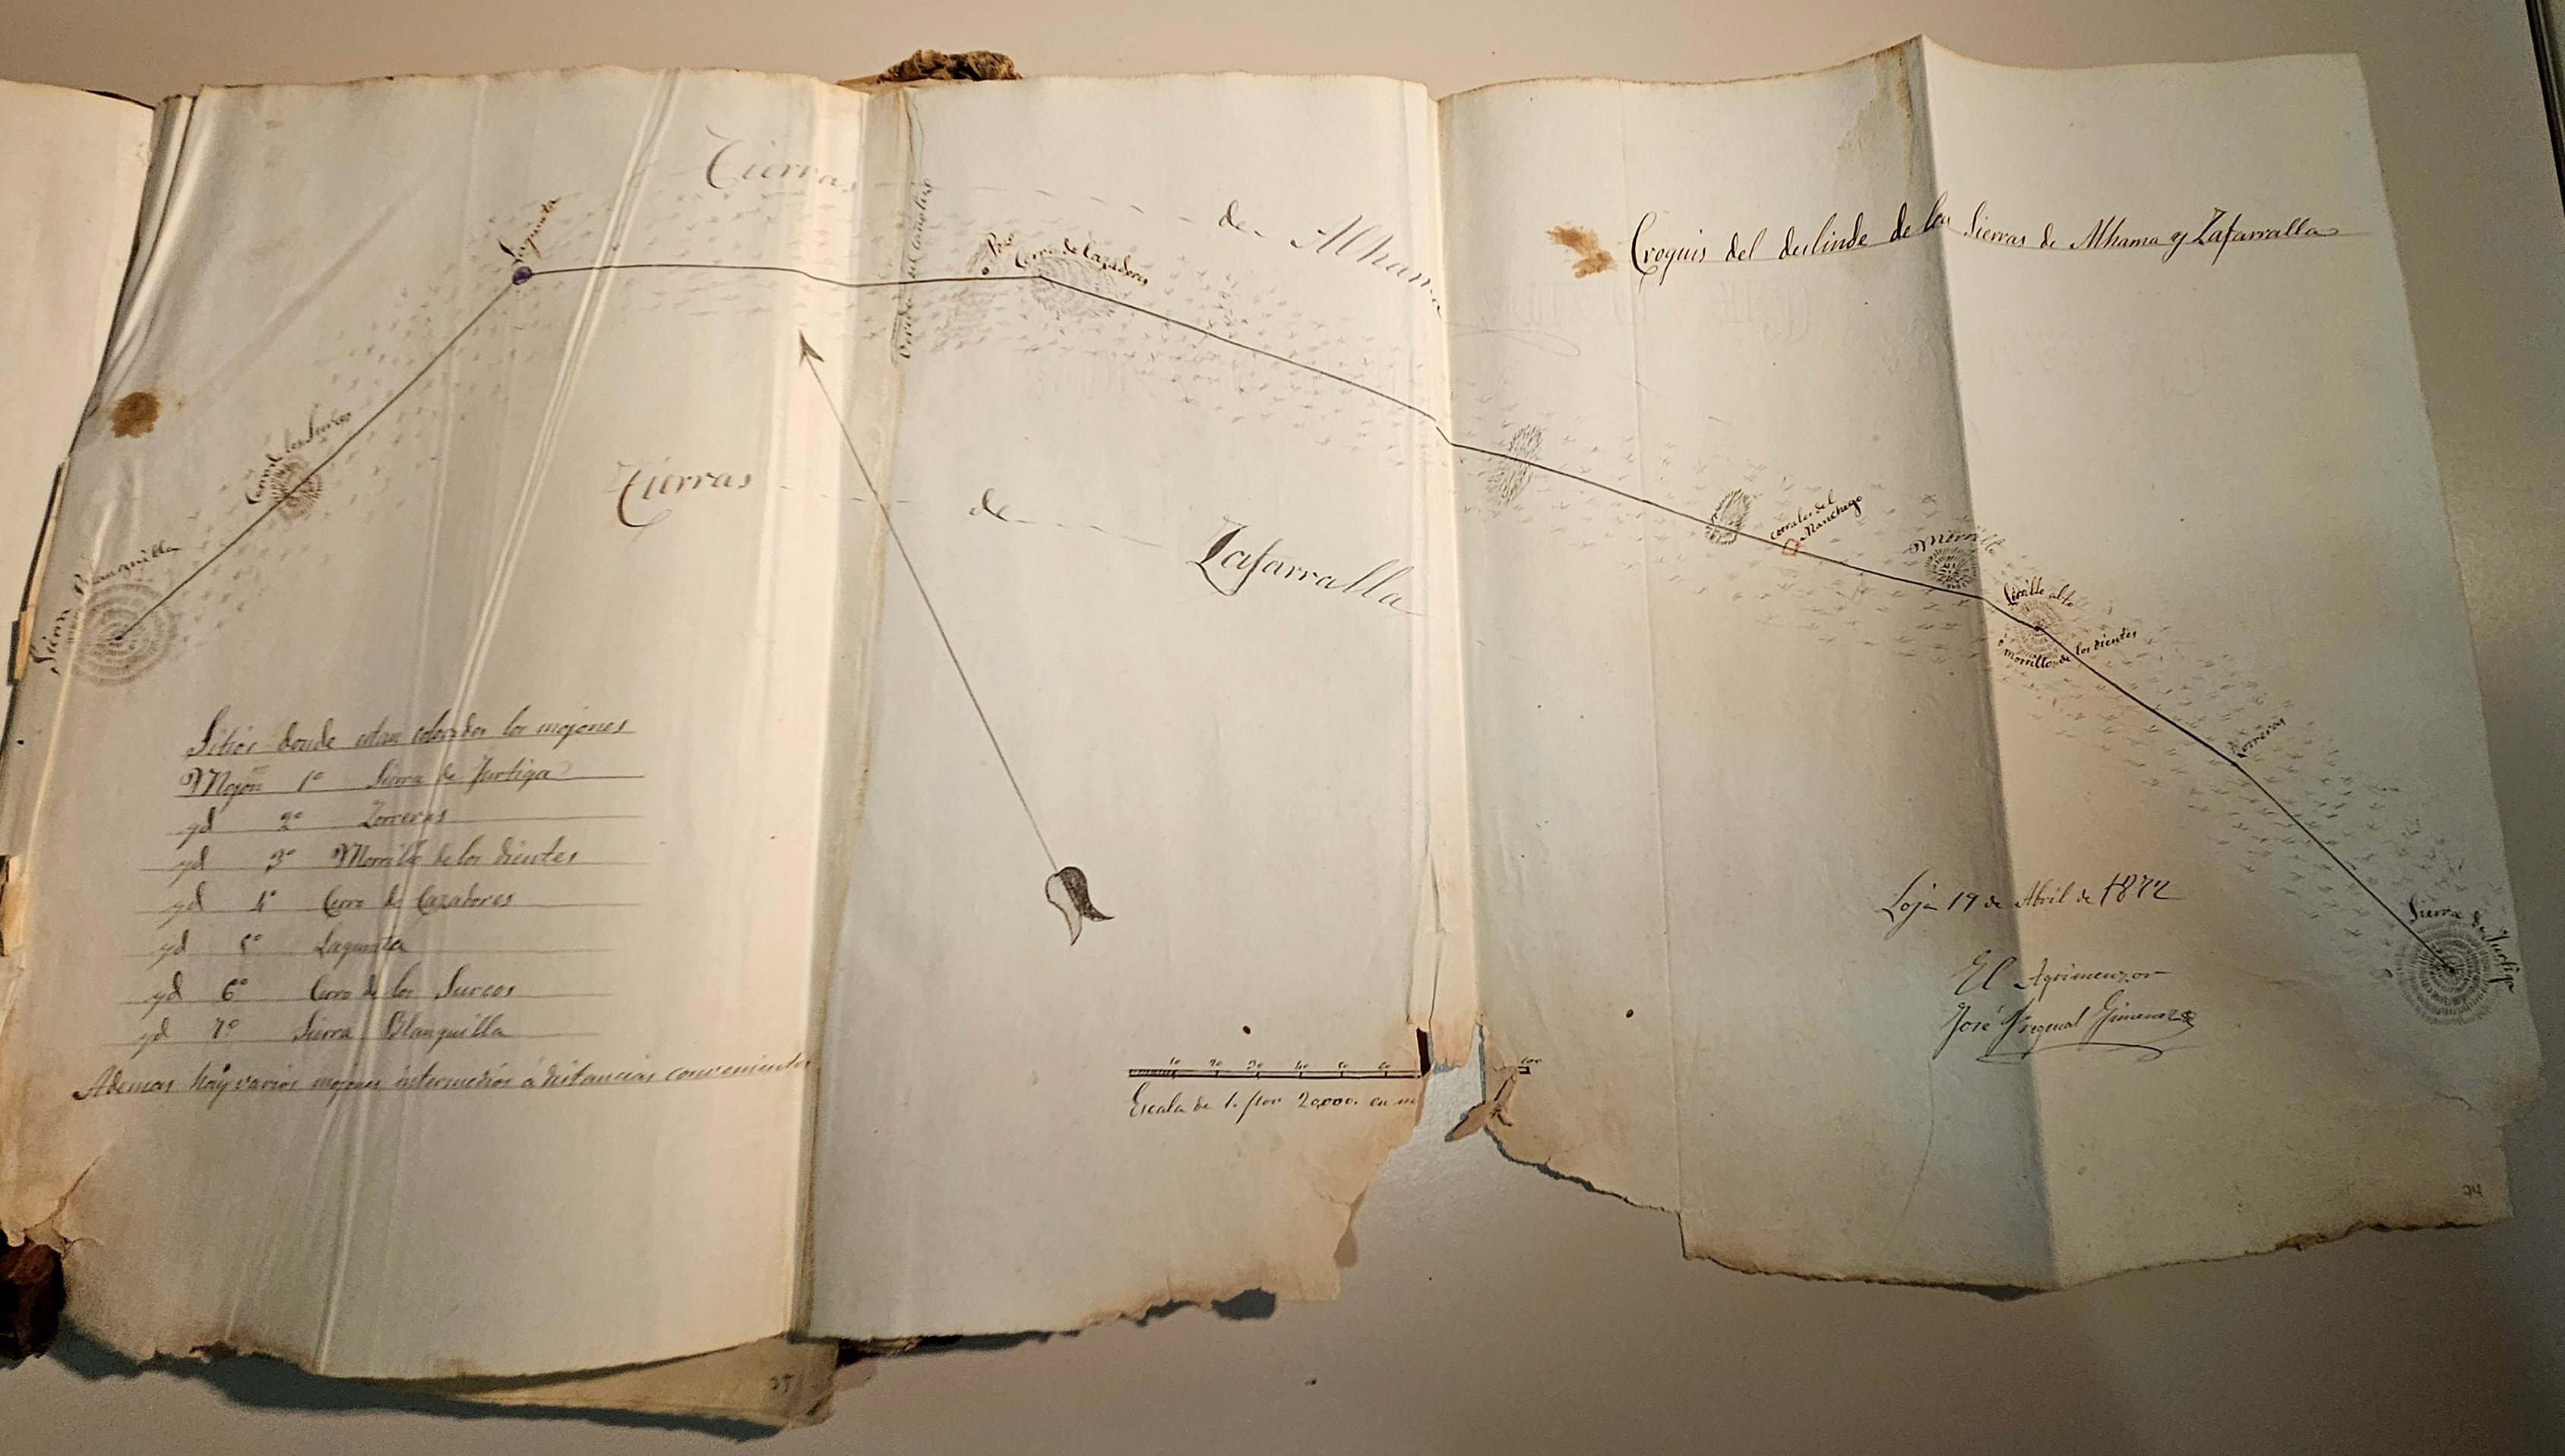 Croquis del deslinde de las Sierras de Alhama y Zafarralla
Tierras de Alhama
Lagunita
Pozo
Cerro de Cazadores
Cerro de los Surcos
Sierra Blanquilla
Tierras de Zafarralla
corrales del
Manchego
Morrillo
alto
ó morrillo de los dientes
Zorreras
Sierra de Jurtiga
Sitios donde estan colocados los mojones
Mojon 1º Sierra de Jurtiga
yd 2º Zorreras
yd 3º Morrillo de los dientes
yd 4º Cerro de Cazadores
yd 5º Lagunita
yd 6º Cerro de los Surcos
yd 7º Sierra Blanquilla
Ademas hay varios mojones intermedios á distancias convenientes
10 20 30 40 50 60 100
Escala de 1. por 20,000. en m
Loja 19 de Abril de 1872
El Agrimenzor
José Gimenez
24
25